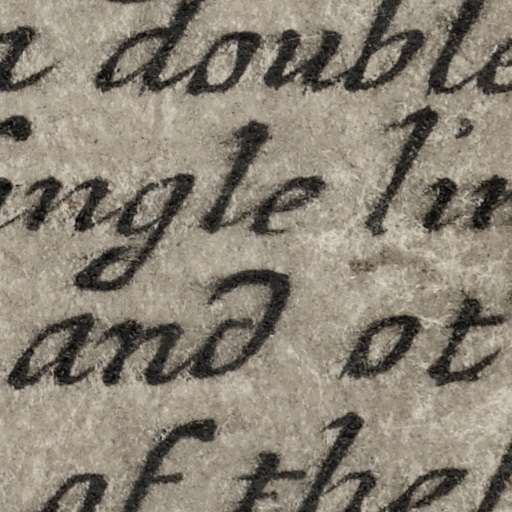 a double
single lin
and ot
of the